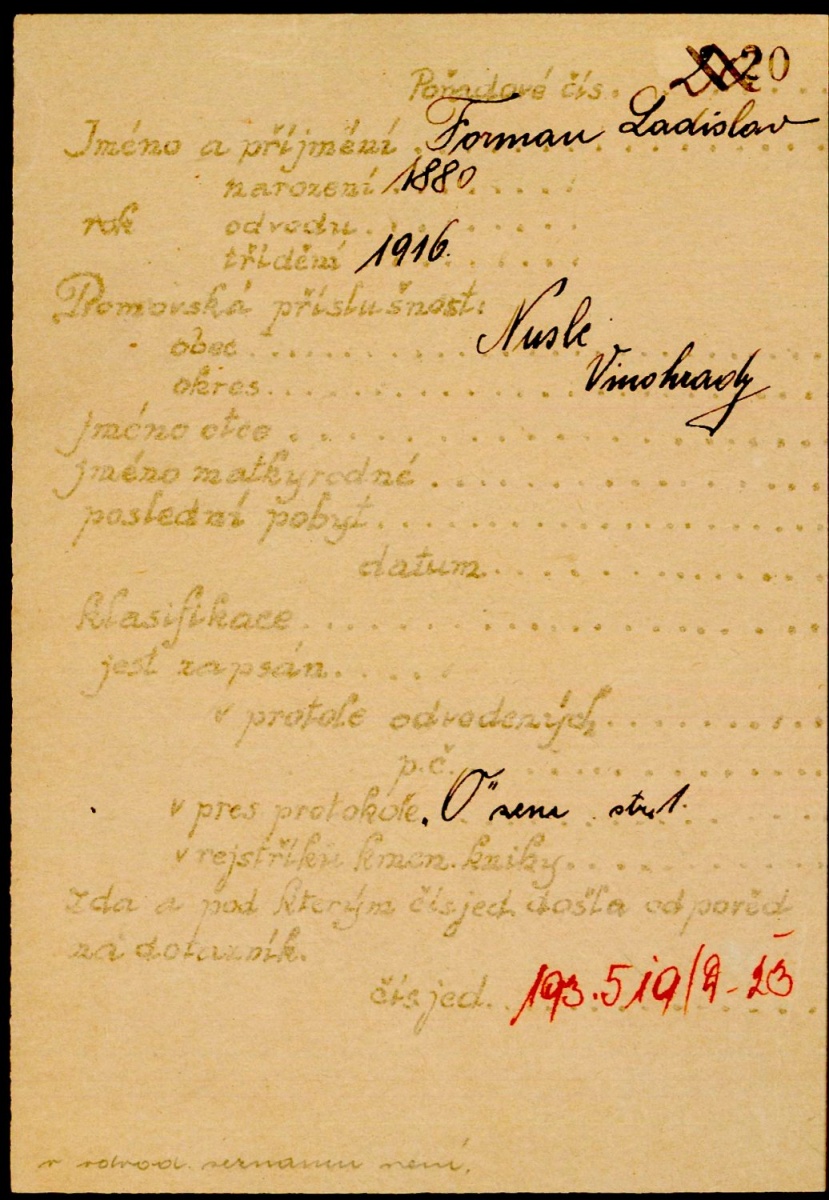 Pořadové čís. 20
Jméno a příjmění Forman Ladislav
narození 1880
rok odvodu
třídění 1916.
Domovská příslušnost:
obec Nusle
okres Vinohrady
jméno otce
jméno matky rodné
poslední pobyt
datum
klasifikace
jest zapsán
v protole odvodených
p.č.
v pres protokole „O" sezn str. 1.
v rejstříku kmen. knihy
Zda a pod kterým čís jed. došla odpověd
na dotazník.
čís jed. 193.519/2-23
v odvod. seznamu není.